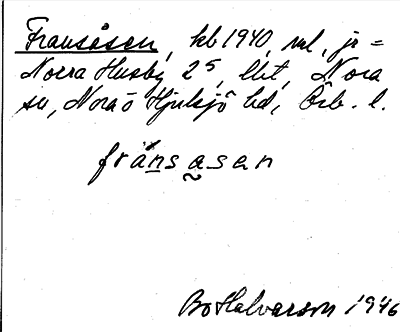 Fransåsen, kb 1940, ml, jr =
Norra Husby 2⁵, lht, Nora
sn, Nora o Hjulsjö hd, Örb. l.
fränsasan
Bo Halvarson 1946